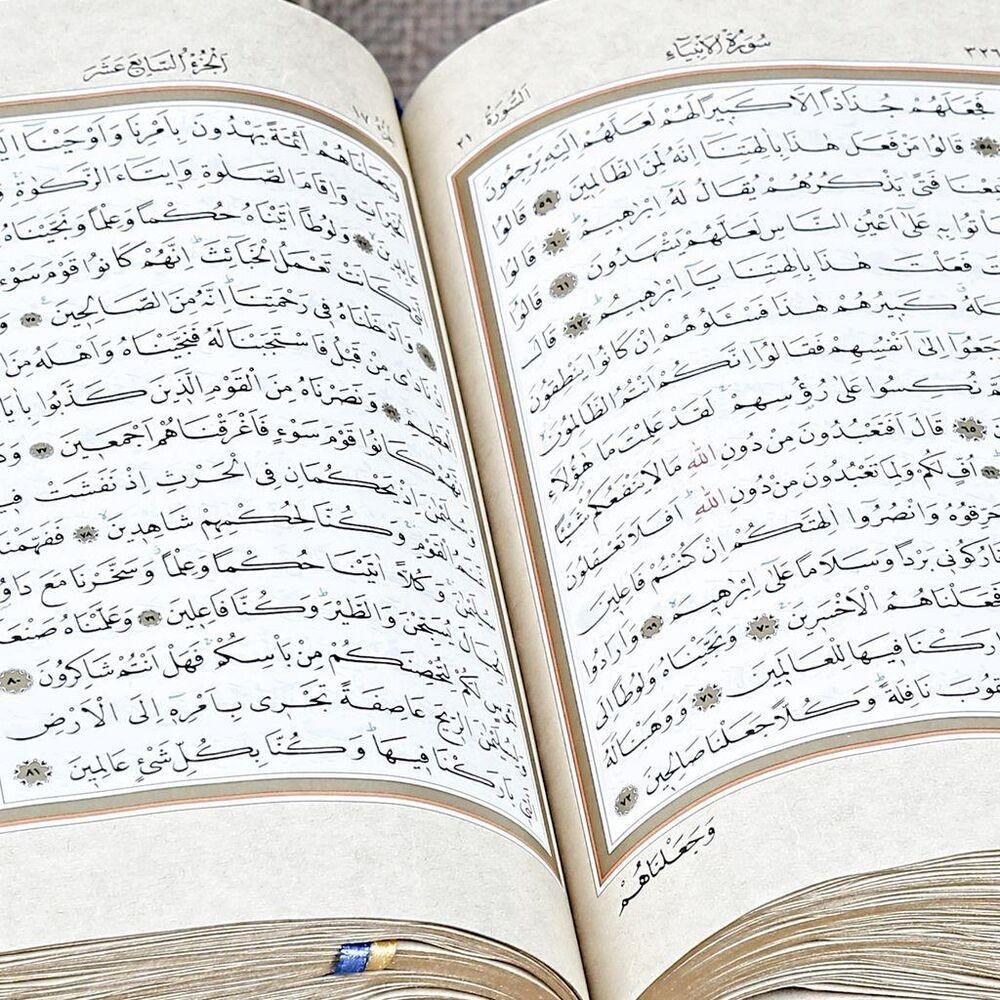 سُورَةُ الْاَنْبِيَاءِ ٣٢٦
السُّورَةُ ٢١
فَجَعَلَهُمْ جُذَاذًا اِلَّا كَبِيرًا لَهُمْ لَعَلَّهُمْ اِلَيْهِ يَرْجِعُونَ
٥٨ قَالُوا مَنْ فَعَلَ هٰذَا بِاٰلِهَتِنَا اِنَّهُ لَمِنَ الظَّالِمِينَ ٥٩ قَالُوا
فَتًى يَذْكُرُهُمْ يُقَالُ لَهُ اِبْرٰهِيمُ ٦٠ قَالُوا
بِهِ عَلٰى اَعْيُنِ النَّاسِ لَعَلَّهُمْ يَشْهَدُونَ ٦١ قَالُوا
فَعَلْتَ هٰذَا بِاٰلِهَتِنَا يَا اِبْرٰهِيمُ ٦٢ قَالَ
كَبِيرُهُمْ هٰذَا فَسْـَٔلُوهُمْ اِنْ كَانُوا يَنْطِقُونَ
اِلٰى اَنْفُسِهِمْ فَقَالُوا اِنَّكُمْ اَنْتُمُ الظَّالِمُونَ
نُكِسُوا عَلٰى رُؤُسِهِمْ لَقَدْ عَلِمْتَ مَا هٰؤُلَاءِ
٦٥ قَالَ اَفَتَعْبُدُونَ مِنْ دُونِ اللّٰهِ مَا لَا يَنْفَعُكُمْ شَيْـًٔا
٦٦ اُفٍّ لَكُمْ وَلِمَا تَعْبُدُونَ مِنْ دُونِ اللّٰهِ اَفَلَا تَعْقِلُونَ
حَرِّقُوهُ وَانْصُرُوا اٰلِهَتَكُمْ اِنْ كُنْتُمْ فَاعِلِينَ
نَارُ كُونِى بَرْدًا وَسَلَامًا عَلٰى اِبْرٰهِيمَ ٦٩ وَاَرَادُوا
فَجَعَلْنَاهُمُ الْاَخْسَرِينَ ٧٠ وَنَجَّيْنَاهُ وَلُوطًا اِلَى
بَارَكْنَا فِيهَا لِلْعَالَمِينَ ٧١ وَوَهَبْنَا لَهُ
نَافِلَةً وَكُلًّا جَعَلْنَا صَالِحِينَ ٧٢
وَجَعَلْنَاهُمْ
اَلْجُزْءُ السَّابِعَ عَشَرَ
١٧
وَجَعَلْنَاهُمْ اَئِمَّةً يَهْدُونَ بِاَمْرِنَا وَاَوْحَيْنَا
الْخَيْرَاتِ وَاِقَامَ الصَّلٰوةِ وَاِيتَاءَ الزَّكٰوةِ
عَابِدِينَ ٧٣ وَلُوطًا اٰتَيْنَاهُ حُكْمًا وَعِلْمًا وَنَجَّيْنَاهُ
كَانَتْ تَعْمَلُ الْخَبَائِثَ اِنَّهُمْ كَانُوا قَوْمَ سَوْءٍ
٧٤ وَاَدْخَلْنَاهُ فِى رَحْمَتِنَا اِنَّهُ مِنَ الصَّالِحِينَ ٧٥
نَادٰى مِنْ قَبْلُ فَاسْتَجَبْنَا لَهُ فَنَجَّيْنَاهُ وَاَهْلَهُ مِنَ
الْعَظِيمِ ٧٦ وَنَصَرْنَاهُ مِنَ الْقَوْمِ الَّذِينَ كَذَّبُوا
اِنَّهُمْ كَانُوا قَوْمَ سَوْءٍ فَاَغْرَقْنَاهُمْ اَجْمَعِينَ ٧٧
وَسُلَيْمٰنَ اِذْ يَحْكُمَانِ فِى الْحَرْثِ اِذْ نَفَشَتْ
الْقَوْمِ وَكُنَّا لِحُكْمِهِمْ شَاهِدِينَ ٧٨ فَفَهَّمْنَا
سُلَيْمٰنَ وَكُلًّا اٰتَيْنَا حُكْمًا وَعِلْمًا وَسَخَّرْنَا مَعَ
الْجِبَالَ يُسَبِّحْنَ وَالطَّيْرَ وَكُنَّا فَاعِلِينَ ٧٩ وَعَلَّمْنَاهُ صَنْعَةَ
لَكُمْ لِتُحْصِنَكُمْ مِنْ بَاْسِكُمْ فَهَلْ اَنْتُمْ شَاكِرُونَ ٨٠
وَلِسُلَيْمٰنَ الرِّيحَ عَاصِفَةً تَجْرِى بِاَمْرِهِ اِلَى الْاَرْضِ
بَارَكْنَا فِيهَا وَكُنَّا بِكُلِّ شَىْءٍ عَالِمِينَ ٨١